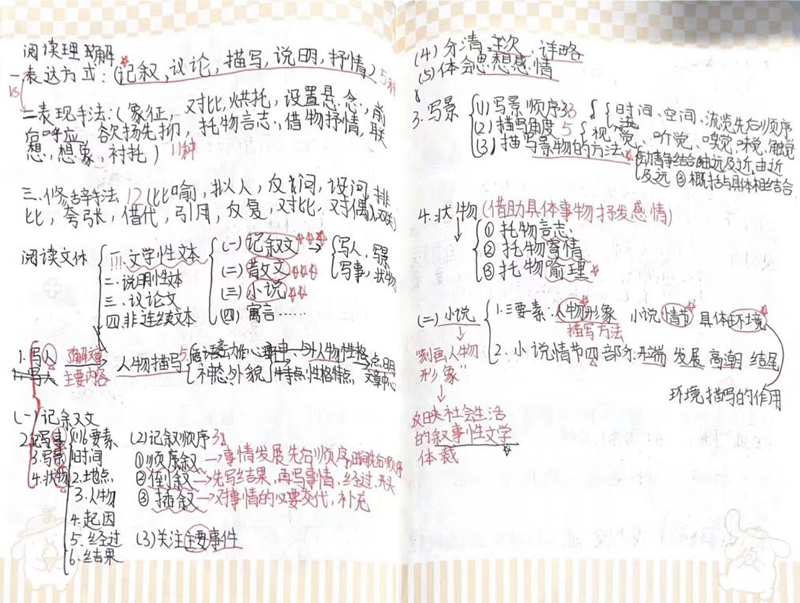 阅读理解
一表达方式:(记叙,议论,描写,说明,抒情)5种
二表现手法:(象征,对比,烘托,设置悬念,前
后呼应,欲扬先抑,托物言志,借物抒情,联
想,想象,衬托)11种
三、修辞手法12(比喻,拟人,反问,设问,排
比,夸张,借代,引用,反复,对比,对偶
阅读文体
一.文学性文本
二.说明性本
三.议论文
四.非连续文本
(一)记叙文
(二)散文
(三)小说
(四)寓言……
写人,写景
写事,状物
1.写人
理解道
主要内容
人物描写5
神态外貌
人物性格
点明
文章中心
(一)记叙文
2.写事
3.写景
4.状物
(1)6要素
1.时间
2.地点
3.人物
4.起因
5.经过
6.结果
(2)记叙顺序3
①顺序叙→事情发展先后顺序
②倒叙→先写结果,再写事情,经过
③插叙→对事情的必要交代,补充
(3)关注主要事件
(4)分清主次、详略
(5)体会思想感情
3.写景
(1)写景顺序3
(2)描写角度5
(3)描写景物的方法
时间、空间、流览先后顺序
视觉、听觉、嗅觉、味觉,触觉
及远 ③概括与具体相结合
4.状物(借助具体事物抒发感情)
①托物言志
②托物寄情
③托物喻理
(二)小说
"刻画人物
形象"
反映社会生活
的叙事性文学
体裁
1.三要素:人物形象 小说情节 具体环境
描写方法
2.小说情节四部分:开端 发展 高潮 结尾
环境描写的作用